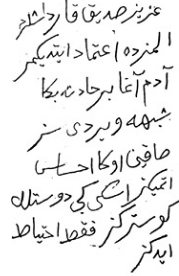 عزیز صدیق قارداشلر
المزده اعتماد ایتدیکمز
آدم آغا بر حادثه بکا
شبهه ویردی سز
صاقین اوکا احساس
ایتمیکز اسکی کبی دوستلق
کوسترکز فقط احتیاط
ایدیکز